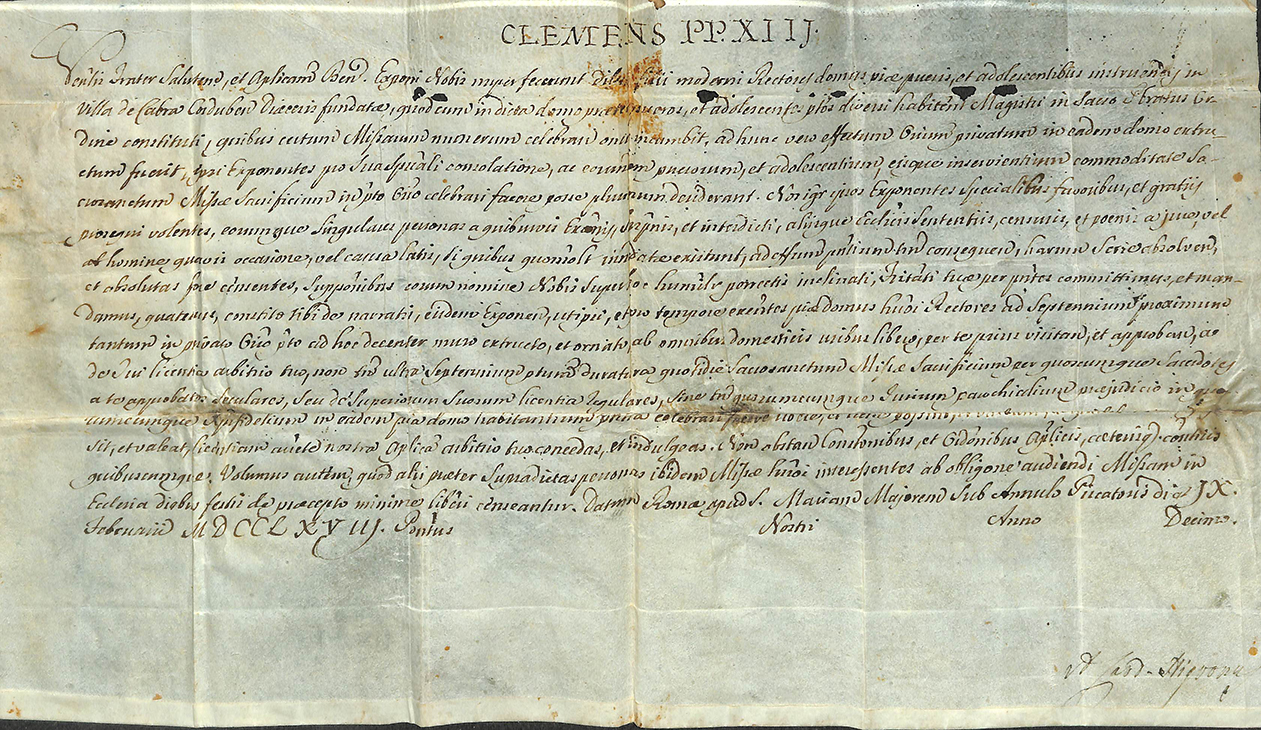 CLEMENS PP. XIIJ.
Salutem, et Aplicam Ben. Exponi Nobis nuper fecerunt moderni Rectores domus piæ pueris, et adolescentibus instruendis in
Villa de Cabra Corduben Diœcesis fundatæ, quod cum in dicta domo præter pueros, et adolescentes plos diversi habitent Magistri in Sacro Pbratus Or-
dine constituti, quibus certum Missarum numerum celebrari onus incumbit, ad hunc vero effectum Orium privatum in eadem domo extru-
ctum fuerit, ipsi Exponentes pro sua Spirali consolatione, ac eorundem puerorum, et adolescentium, eisque inservientium commoditate Sa-
crosanctum Missæ Sacrificium in pto Orio celebrari facere posse plurimum desiderant. Nos igr ipsos Exponentes Specialibus favoribus, et gratijs
prosequi volentes, eorumque Singulares personas a quibusvis Excõnis, Suspnis, et interdicti, alijsque Ecclicis Sententijs, censuris, et poenis a jure, vel
ab homine quavis occasione, vel causa latis, si quibus quomolt innodatæ existunt, ad effum pntium tm consequen, harum Serie absolven,
et absolutas fore censentes, Supponibus eorum nomine Nobis Super hoc humiliter porrectis inclinati, Fritati tuæ per pntes committimus, et man-
damus, quatenus, constito tibi de narratis, eisdem Exponen, ut ipsi, et pro tempore exentes piæ domus hmoi Rectores ad Septennium proximum
tantum in privato Orio pto ad hoc decenter muro extructo, et ornato, ab omnibus domesticis usibus libero, per te prius visitan, et approban, ac
de Tui licentia arbitrio tuo, non tm ultra Septennium ptum duratura quotidie Sacrosanctum Missæ Sacrificium per quoscunque Sacerdotes
a te approbatos Seculares, seu de Superiorum Suorum licentia Regulares, Sine tm quorumcumque Jurium parochialium prejudicio in
in eadem pia domo habitantium celebrari facere
sit, et valeat, licentiam aucte nostra Aplica arbitrio tuo concedas, et indulgeas. Non obstan Constonibus, et Ordonibus Aplicis, cæterisq contrijs
quibuscunque. Volumus autem, quod alij præter Supradictas personas ibidem Missæ hmoi interessentes ab obligone audiendi Missam in
Ecclesia diebus festis de præcepto minime liberi censeantur. Datum Romæ apud S. Mariam Majorem Sub Annulo Piscatoris die IX.
Februarii MDCCLXVIIJ. Pontus Nostri Anno Decimo.